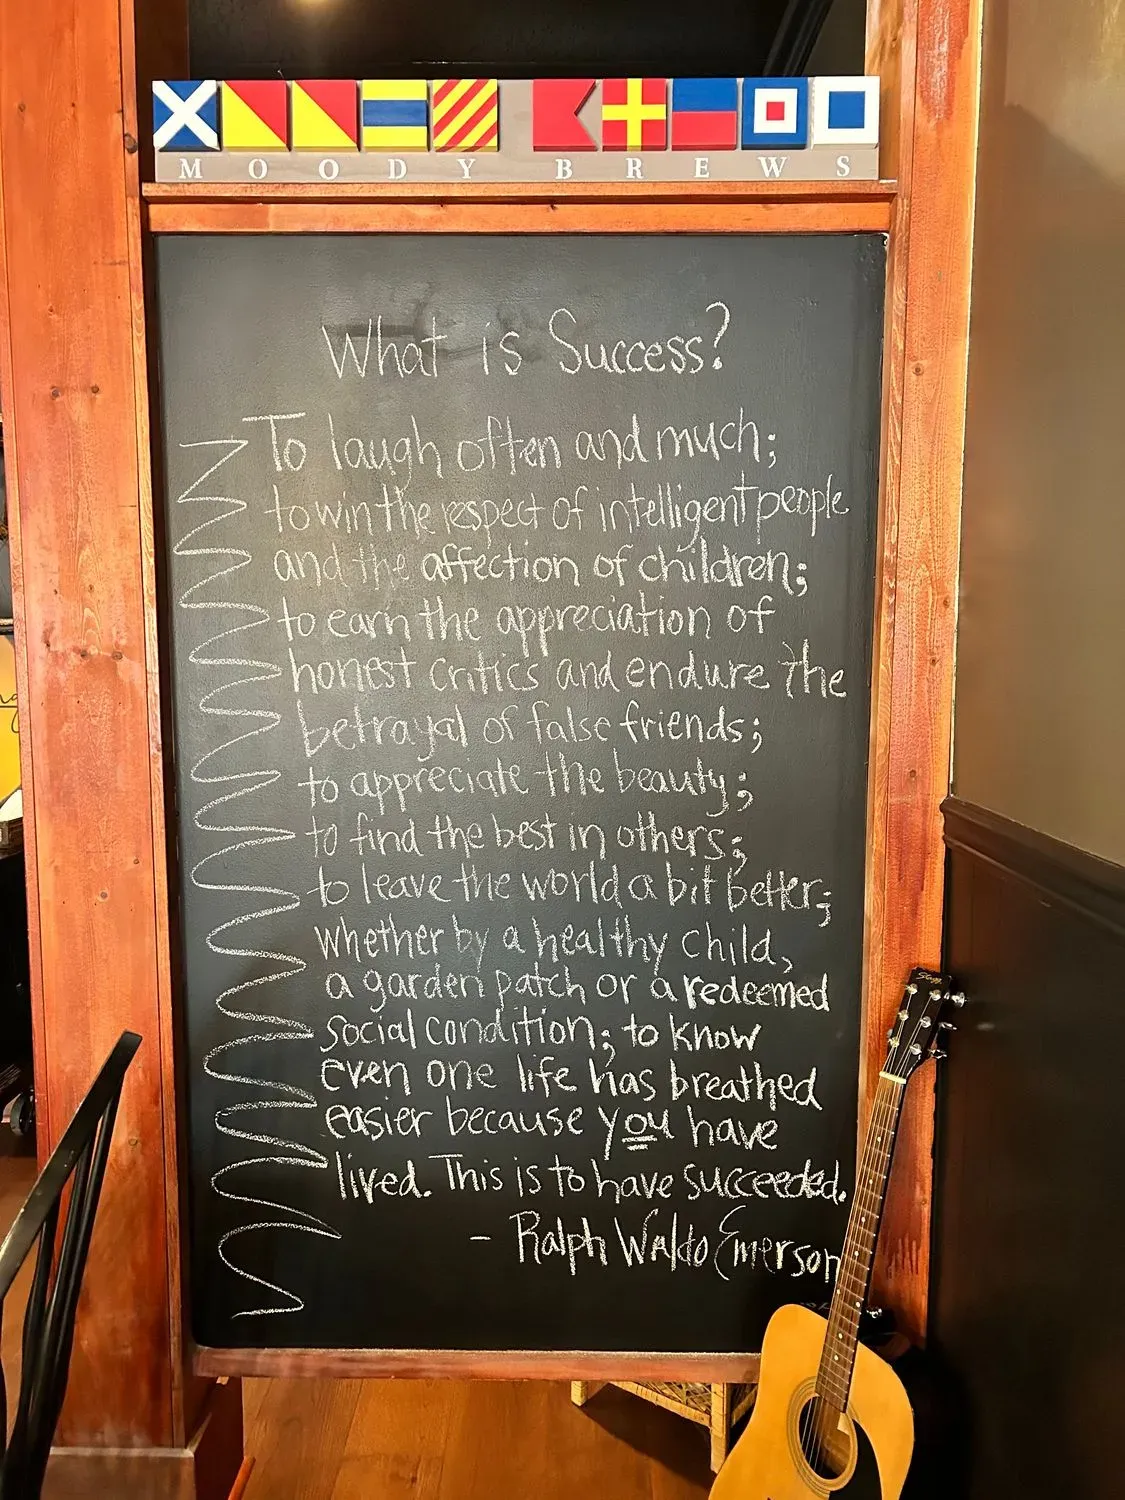 MOODY BREWS
What is Success?
To laugh often and much;
to win the respect of intelligent people
and the affection of children;
to earn the appreciation of
honest critics and endure the
betrayal of false friends;
to appreciate the beauty;
to find the best in others;
to leave the world a bit better;
whether by a healthy child,
a garden patch or a redeemed
social condition; to know
even one life has breathed
easier because you have
lived. This is to have succeeded.
- Ralph Waldo Emerson